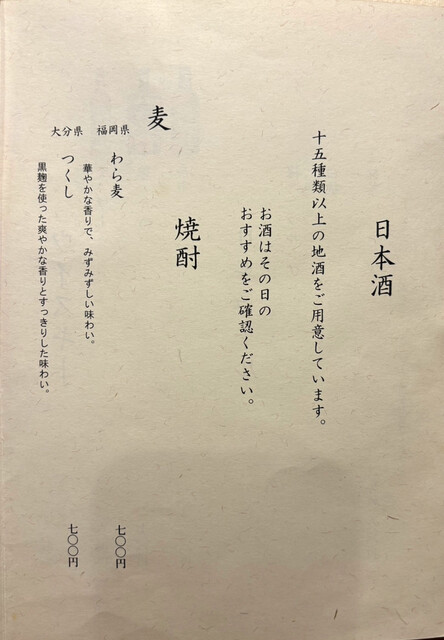 日本酒
十五種類以上の地酒をご用意しています。
お酒はその日の
おすすめをご確認ください。
焼酎
麦
福岡県 わら麦 七〇〇円
華やかな香りで、みずみずしい味わい。
大分県 つくし 七〇〇円
黒麹を使った爽やかな香りとすっきりした味わい。